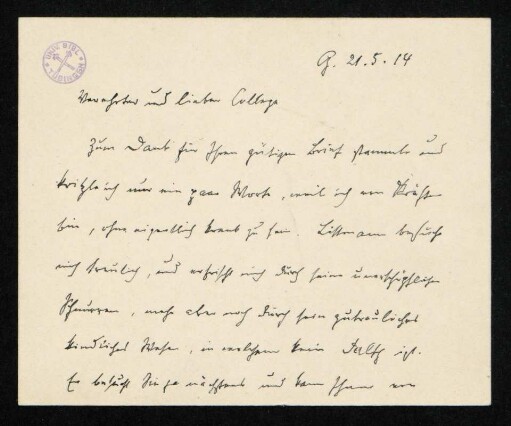 UNIV. BIBL. TÜBINGEN
G. 21.5.14
Verehrter und lieber College
Zum Dank für Ihren gütigen Brief stammle und
kritzle ich nur ein paar Worte, weil ich von Kräften
bin, ohne eigentlich krank zu sein. Littmann besucht
mich treulich, und erfrischt mich durch seine unerschöpflichen
Schnurren, mehr aber noch durch sein zutrauliches
kindliches Wesen, in welchem kein Falsch ist.
Er besucht Sie ja nächstens und kann Ihnen von